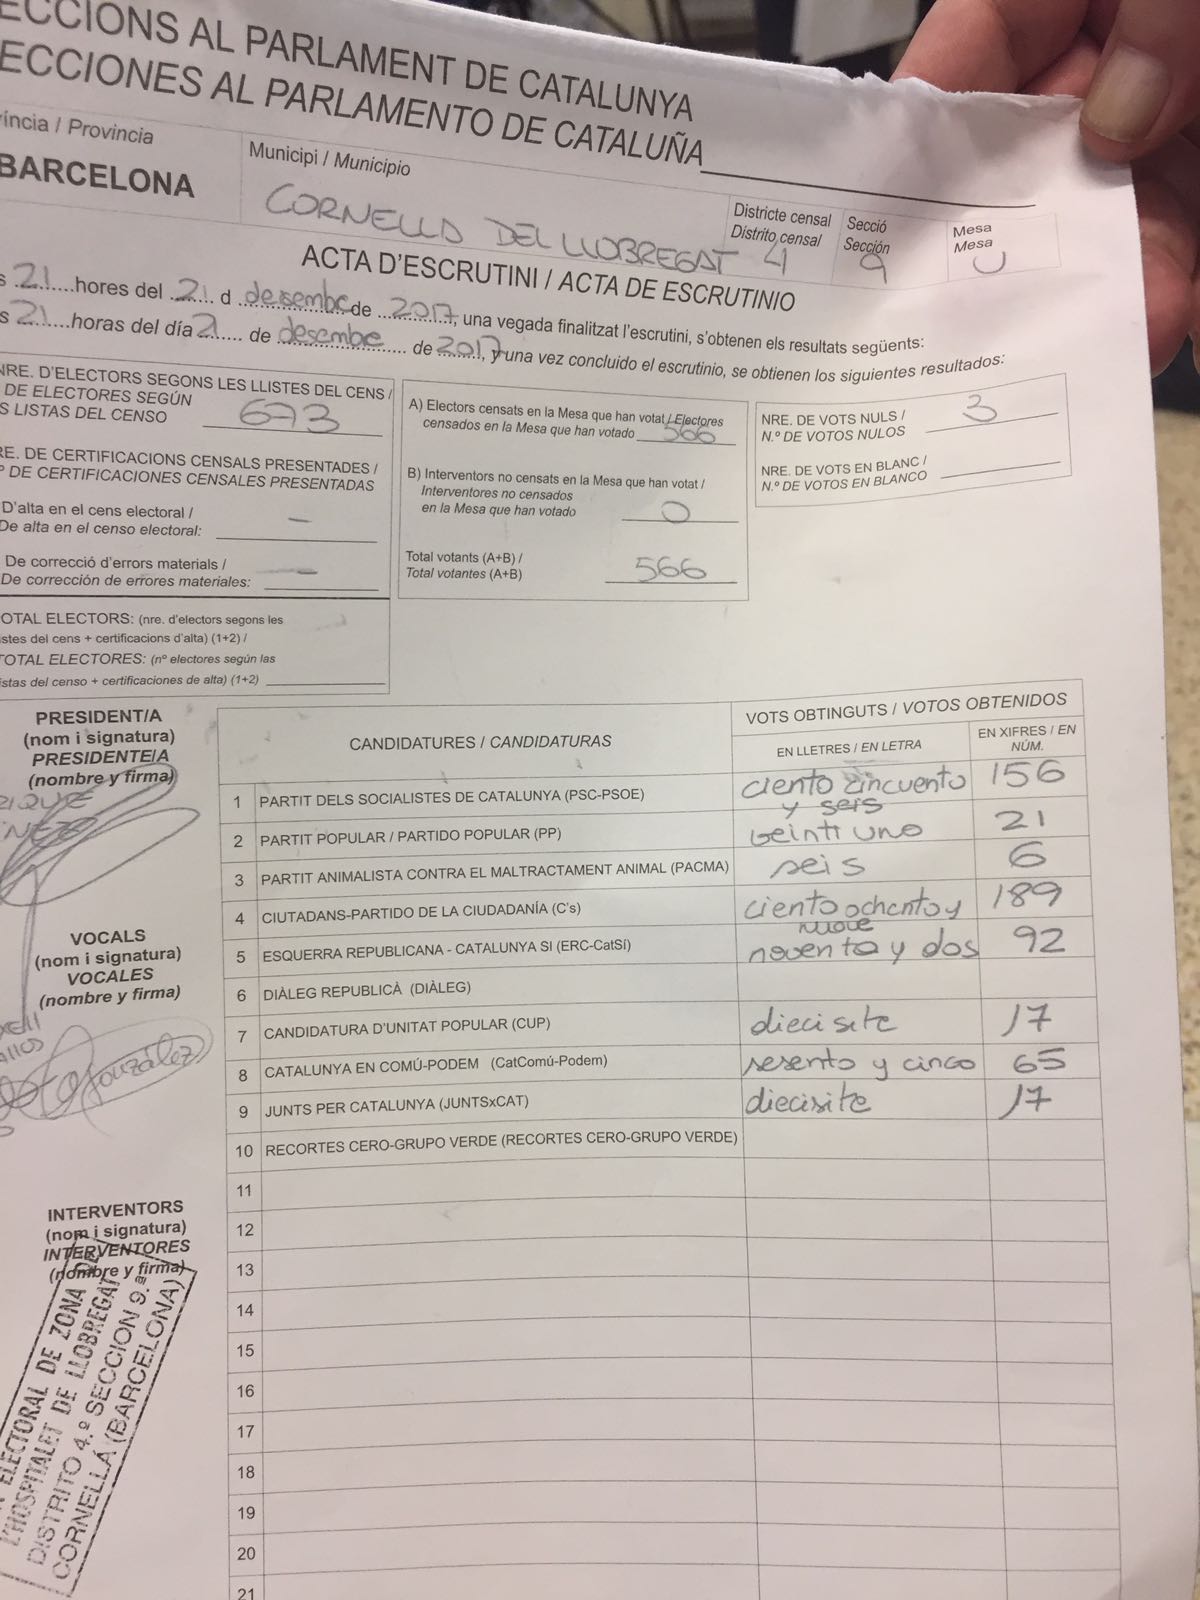 ECCIONS AL PARLAMENT DE CATALUNYA
ECCIONES AL PARLAMENTO DE CATALUÑA
víncia / Provincia
BARCELONA
Municipi / Municipio
CORNELLA DEL LLOBREGAT
Districte censal
Distrito censal
4
Secció
Sección
9
Mesa
Mesa
U
ACTA D'ESCRUTINI / ACTA DE ESCRUTINIO
s 21 hores del 21 d desembe de 2017, una vegada finalitzat l'escrutini, s'obtenen els resultats següents:
s 21 horas del día 21 de desembe de 2017, y una vez concluido el escrutinio, se obtienen los siguientes resultados:
NRE. D'ELECTORS SEGONS LES LLISTES DEL CENS /
DE ELECTORES SEGÚN
S LISTAS DEL CENSO 673
RE. DE CERTIFICACIONS CENSALS PRESENTADES /
º DE CERTIFICACIONES CENSALES PRESENTADAS
D'alta en el cens electoral /
De alta en el censo electoral: —
De correcció d'errors materials /
De corrección de errores materiales: —
OTAL ELECTORS: (nre. d'electors segons les
istes del cens + certificacions d'alta) (1+2) /
TOTAL ELECTORES: (nº electores según las
istas del censo + certificaciones de alta) (1+2)
A) Electors censats en la Mesa que han votat / Electores
censados en la Mesa que han votado 566
B) Interventors no censats en la Mesa que han votat /
Interventores no censados
en la Mesa que han votado 0
Total votants (A+B) /
Total votantes (A+B) 566
NRE. DE VOTS NULS /
N.º DE VOTOS NULOS 3
NRE. DE VOTS EN BLANC /
N.º DE VOTOS EN BLANCO
PRESIDENT/A
(nom i signatura)
PRESIDENTE/A
(nombre y firma)
VOCALS
(nom i signatura)
VOCALES
(nombre y firma)
González
INTERVENTORS
(nom i signatura)
INTERVENTORES
(nombre y firma)
ELECTORAL DE ZONA DE
L'HOSPITALET DE LLOBREGAT
DISTRITO 4.º SECCION 9.ª
CORNELLÁ (BARCELONA)
CANDIDATURES / CANDIDATURAS
VOTS OBTINGUTS / VOTOS OBTENIDOS
EN LLETRES / EN LETRA
EN XIFRES / EN
NÚM.
1 PARTIT DELS SOCIALISTES DE CATALUNYA (PSC-PSOE) ciento cincuenta y seis 156
2 PARTIT POPULAR / PARTIDO POPULAR (PP) veinti uno 21
3 PARTIT ANIMALISTA CONTRA EL MALTRACTAMENT ANIMAL (PACMA) seis 6
4 CIUTADANS-PARTIDO DE LA CIUDADANÍA (C's) ciento ochenta y nueve 189
5 ESQUERRA REPUBLICANA - CATALUNYA SI (ERC-CatSí) noventa y dos 92
6 DIÀLEG REPUBLICÀ (DIÀLEG)
7 CANDIDATURA D'UNITAT POPULAR (CUP) diecisite 17
8 CATALUNYA EN COMÚ-PODEM (CatComú-Podem) sesenta y cinco 65
9 JUNTS PER CATALUNYA (JUNTSxCAT) diecisite 17
10 RECORTES CERO-GRUPO VERDE (RECORTES CERO-GRUPO VERDE)
11
12
13
14
15
16
17
18
19
20
21